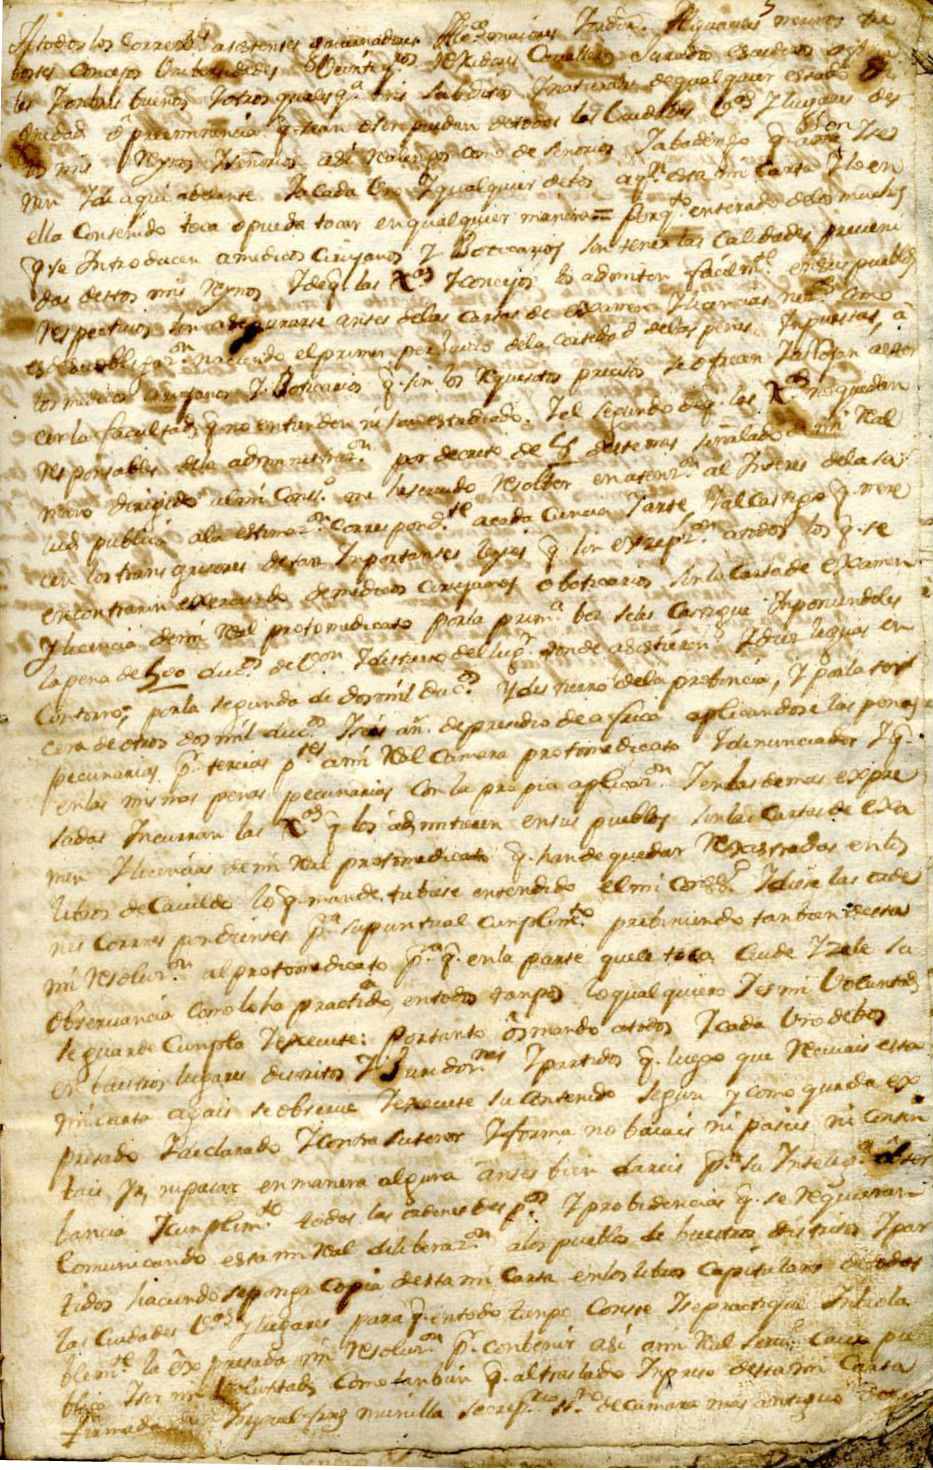 A todos los Correx.es asistentes Governadores Alc.es maiores y ordin. Alguaciles merinos Pre
bostes Concejos Unibersidades Veinte q.os Rexidores Cavalleros Jurados escuderos ofiz
les Y ombres buenos Y otros qualesq.a mis subditos Y naturales de qual quier estado
dignidad o preeminencia q. sean o ser puedan de todas las Ciudades V.as Y lugares des
tos mis Reynos Y señorios asi Realengos como de señorio Y abadengo q. aora son Y se
ran Y de aqui adelante Y a cada Uno Y qualquier de Vos a q.n esta mi Carta Y lo en
ella Contenido toca o pueda tocar en qualquier manera = porq.to enterado de los muchos
q. se Introducen a medicos Cirujanos Y Boticarios sin tener las Calidades preveni
das destos mis Reynos Y de q. las X.as Y Concejos los admiten facilm.te en sus pueblos
respectivos sin asegurarse antes de las cartas de examen Y licencias nec.as como
es de su obligaz.on naciendo el primer perjuicio de la cortedad de las penas Impuestas a
los medicos cirujanos Y Boticarios q. sin los requisitos precisos se ofrecen Y arrojan a exer
cer la facultad q. no entienden ni han estudiado. Y el segundo de q. las X.as no quedan
responsables de la administraz.on por decreto de 15 deste mes señalado de mi Real
mano dirigido al mi Cons.o he sido servido resolver en atenz.on al Interes de la sa
lud publica a la estimaz.on correspond.te a cada Ciencia Y arte, Y al Castigo q. mere
cen los transgresores de tan Importantes leyes q. sin excepz.on a todos los q. se
encontraren exerciendo de medicos cirujanos o boticarios sin la Carta de examen
Y licencia de mi Real protomedicato por la prim.a bez se les Castigue Imponiendoles
la pena de 500 duc.s de Von Y destierro del lug.r donde asistieren Y diez leguas en
Contorno, por la segunda de dos mil duc.s Y destierro de la probincia, Y por la ter
cera de otros dos mil duc.s Y seis añ. de presidio de africa aplicandose las penas
pecuniarias p.r tercias p.tes a mi Real Camara protomedicato Y denunciador Y q.
en las mismas penas pecuniarias con la propia aplicaz.on Y en las demas expre
sadas Incurran las X.as q. los admitieren en sus pueblos sin las Cartas de exa
men Y licencias de mi Real protomedicato q. han de quedar Rexistradas en los
libros de Cavildo lo q. mande tubiese entendido el mi Consejo Y diese las orde
nes Correspondientes p.a su puntual Cumplim.to prebiniendo tambien desta
mi resoluz.on al protomedicato p.a q. en la parte que le toca Cuide Y zele su
Observancia como lo ha practicado en todos tiempos lo qual quiero Y es mi Voluntad
se guarde Cumpla Y execute: Por tanto os mando a todos Y cada Uno de bos
en buestros lugares distritos Y Jurisdiz.nes Y partidos q. luego que reciuais esta
mi carta agais se observe Y execute su contenido segun y como queda ex
presado Y declarado Y contra su tenor Y forma no baiais ni paseis ni Consin
tais Ir, ni pasar en manera alguna antes bien dareis p.a su Intelig.a obser
bancia Y cumplim.to todas las ordenes desp.s Y probidencias q. se requieran
Comunicando esta mi Real deliberaz.on a los pueblos de buestros distritos Y par
tidos haciendo se ponga copia desta mi Carta en los libros Capitulares de todas
las Ciudades V.as Y lugares para q. en todo tiempo Conste Y se practique Inbiola
blem.te la expresada mi Resoluz.on p.r conbenir asi a mi Real servi.o Causa pu
blica Y ser mi Voluntad, como tambien q. al traslado Impreso desta mi Carta
firmado de D.n Miguel frnz munilla secret.o s.no de camara mas antiguo